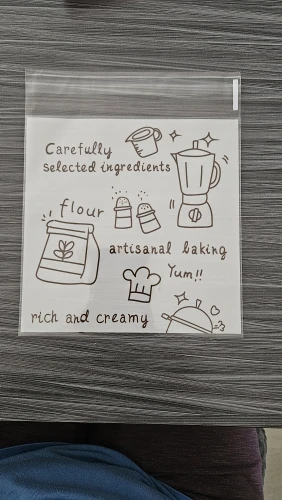 Carefully
selected ingredients
flour
artisanal baking
Yum!!
rich and creamy